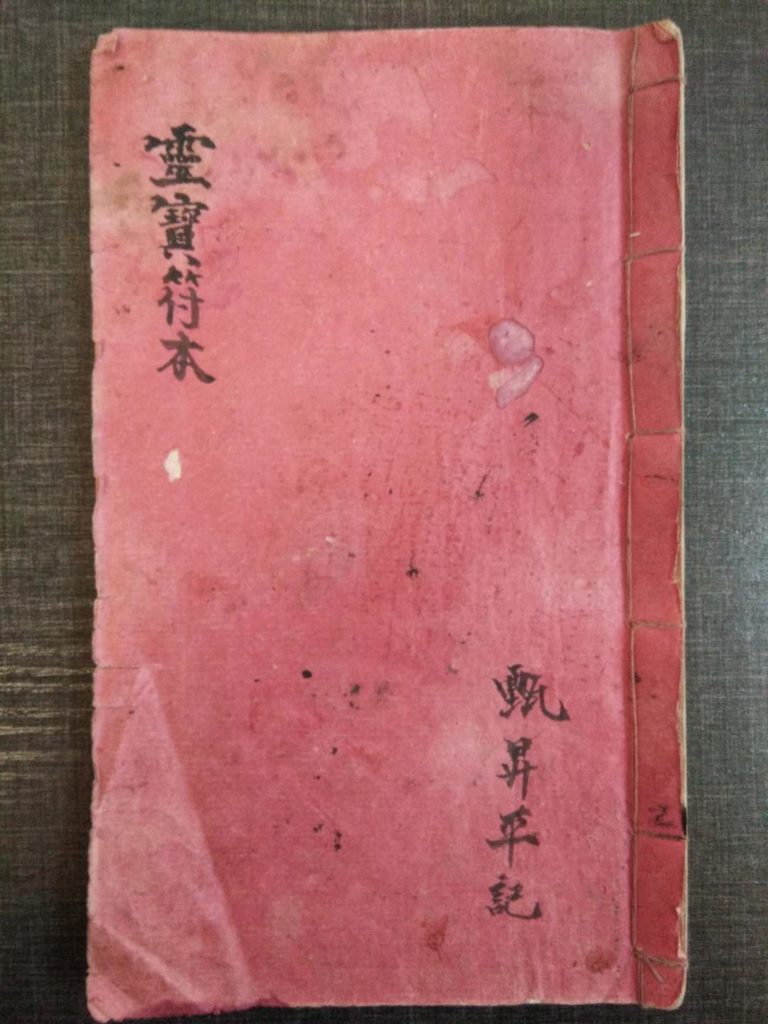 靈寶符本
甄昇平記